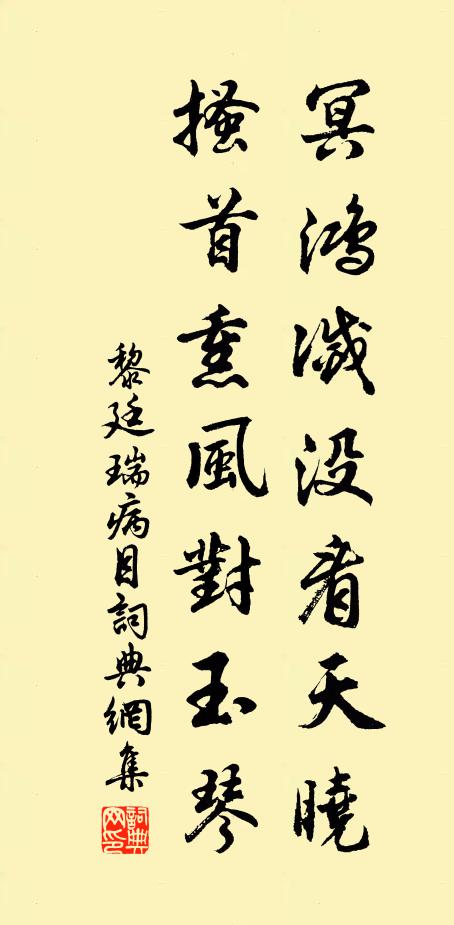 冥鴻滅没看天曉
搔首熏風對玉琴
黎廷瑞病目詞典網集
詞典网印